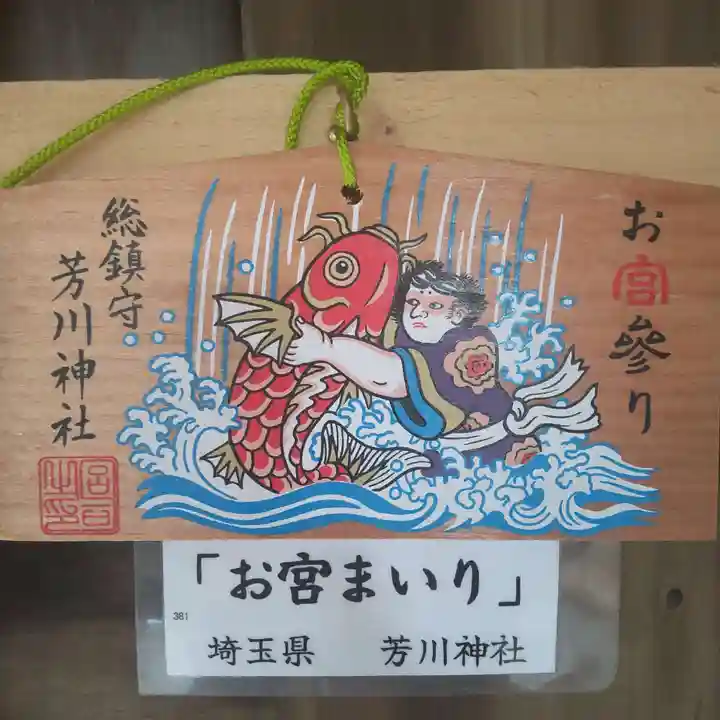 お宮參り
総鎮守
芳川神社
「お宮まいり」
381
埼玉県 芳川神社